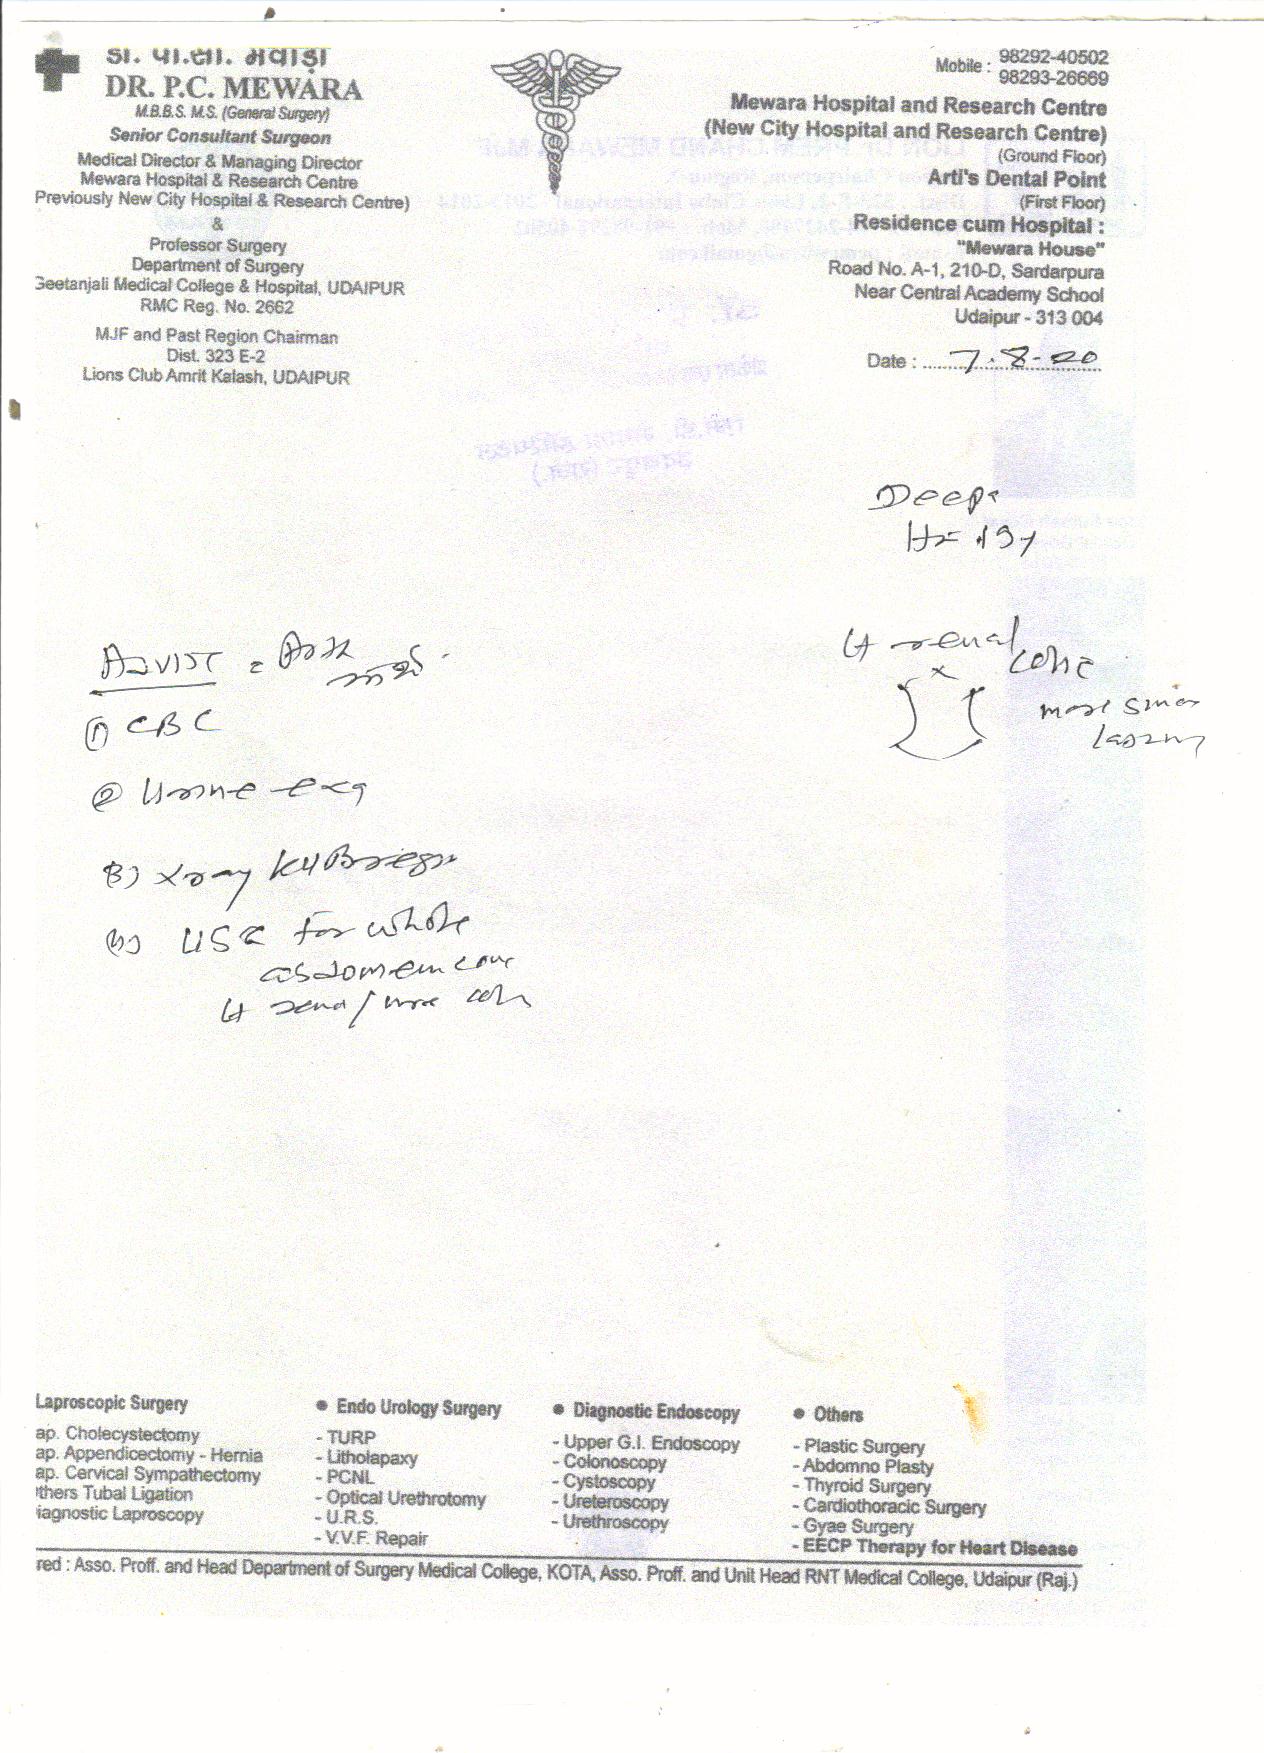 DR. P.C. MEWARA
M.B.B.S. M.S. (General Surgery)
Senior Consultant Surgeon
Medical Director & Managing Director
Mewara Hospital & Research Centre
Previously New City Hospital & Research Centre)
&
Professor Surgery
Department of Surgery
Geetanjali Medical College & Hospital, UDAIPUR
RMC Reg. No. 2662
MJF and Past Region Chairman
Dist. 323 E-2
Lions Club Amrit Kalash, UDAIPUR
Mobile : 98292-40502
98293-26669
Mewara Hospital and Research Centre
(New City Hospital and Research Centre)
(Ground Floor)
Arti's Dental Point
(First Floor)
Residence cum Hospital :
"Mewara House"
Road No. A-1, 210-D, Sardarpura
Near Central Academy School
Udaipur - 313 004
Date : 7.8-20
Lt renal
colic
more since
Advist =
① CBC
② Urine exa
3) Xray KUB region
4) USG for whole
abdomen
Lt
Laproscopic Surgery
ap. Cholecystectomy
ap. Appendicectomy - Hernia
ap. Cervical Sympathectomy
thers Tubal Ligation
iagnostic Laproscopy
● Endo Urology Surgery
- TURP
- Litholapaxy
- PCNL
- Optical Urethrotomy
- U.R.S.
- V.V.F. Repair
● Diagnostic Endoscopy
- Upper G.I. Endoscopy
- Colonoscopy
- Cystoscopy
- Ureteroscopy
- Urethroscopy
● Others
- Plastic Surgery
- Abdomno Plasty
- Thyroid Surgery
- Cardiothoracic Surgery
- Gyae Surgery
- EECP Therapy for Heart Disease
red : Asso. Proff. and Head Department of Surgery Medical College, KOTA, Asso. Proff. and Unit Head RNT Medical College, Udaipur (Raj.)